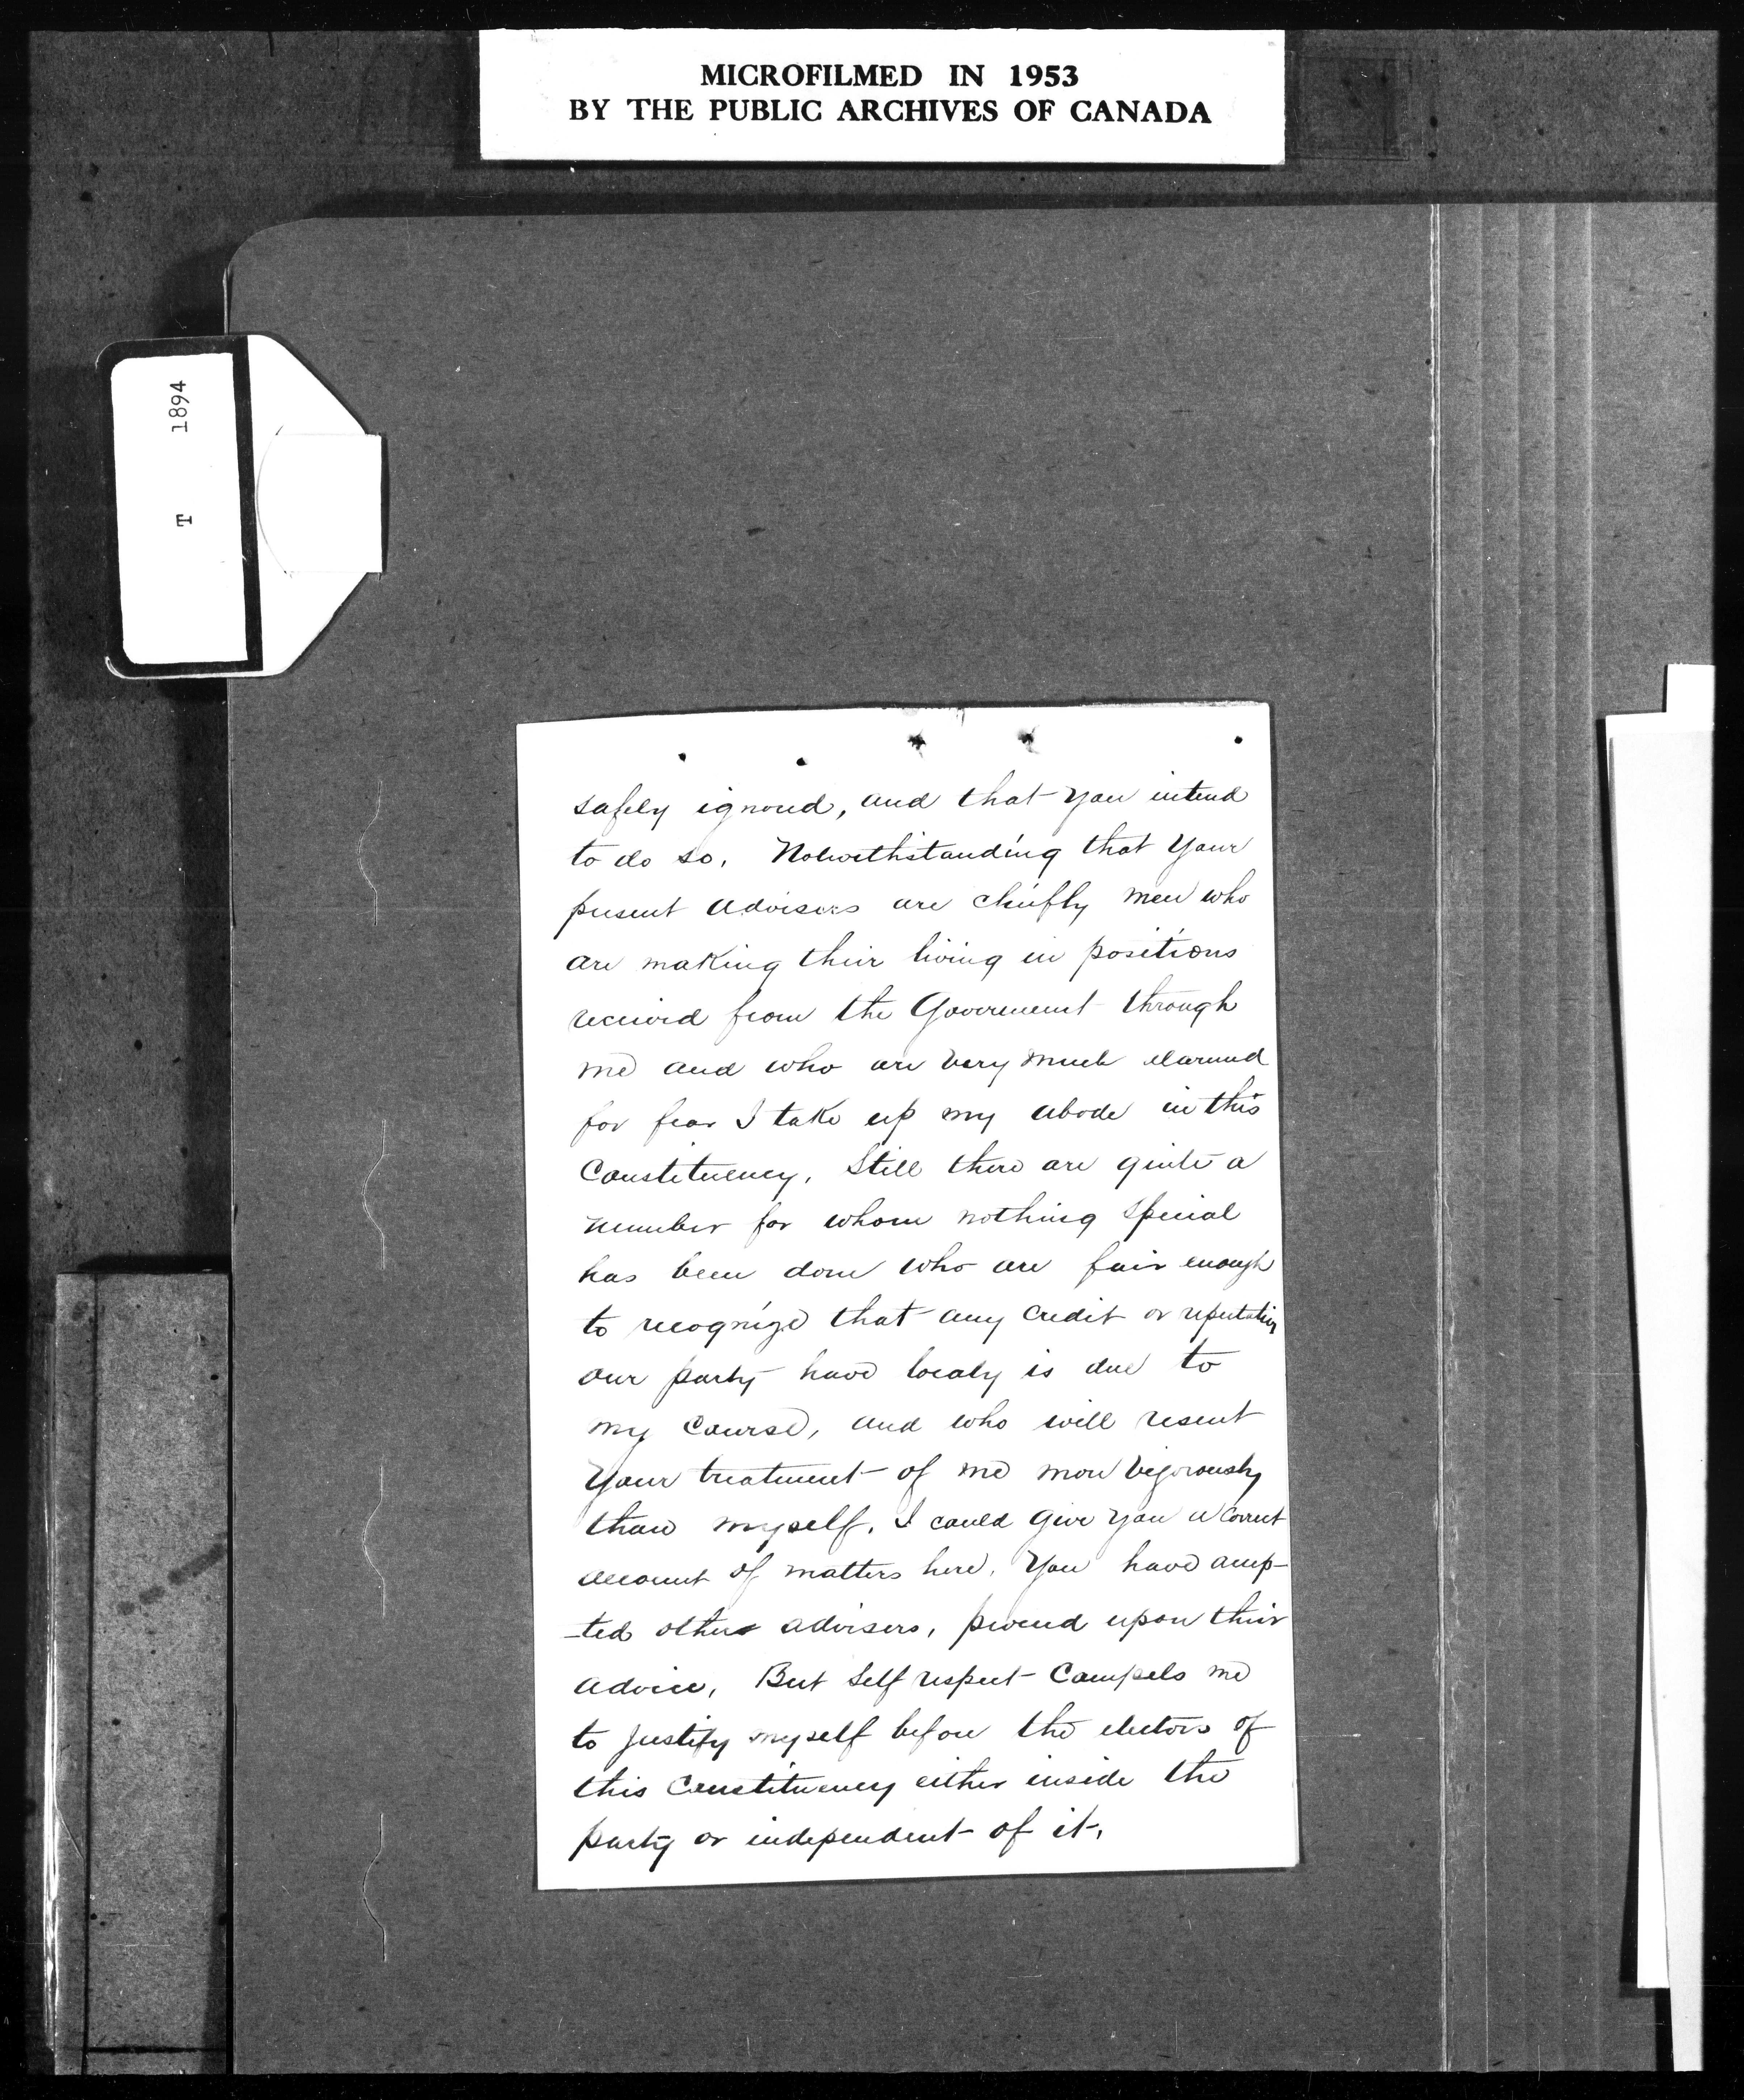 MICROFILMED IN 1953
BY THE PUBLIC ARCHIVES OF CANADA
T 1894
safely ignored, and that you intend
to do so. Notwithstanding that your
present advisers are chiefly men who
are making their living in positions
received from the Government through
me and who are very much alarmed
for fear I take up my abode in this
Constituency. Still there are quite a
number for whom nothing special
has been done who are fair enough
to recognize that any credit or reputation
our party have localy is due to
my course, and who will resent
your treatment of me more vigorously
than myself. I could give you a correct
account of matters here. You have accep-
-ted other advisers, proceed upon their
advice, But self respect compels me
to justify myself before the electors of
this Constituency either inside the
party or independent of it.